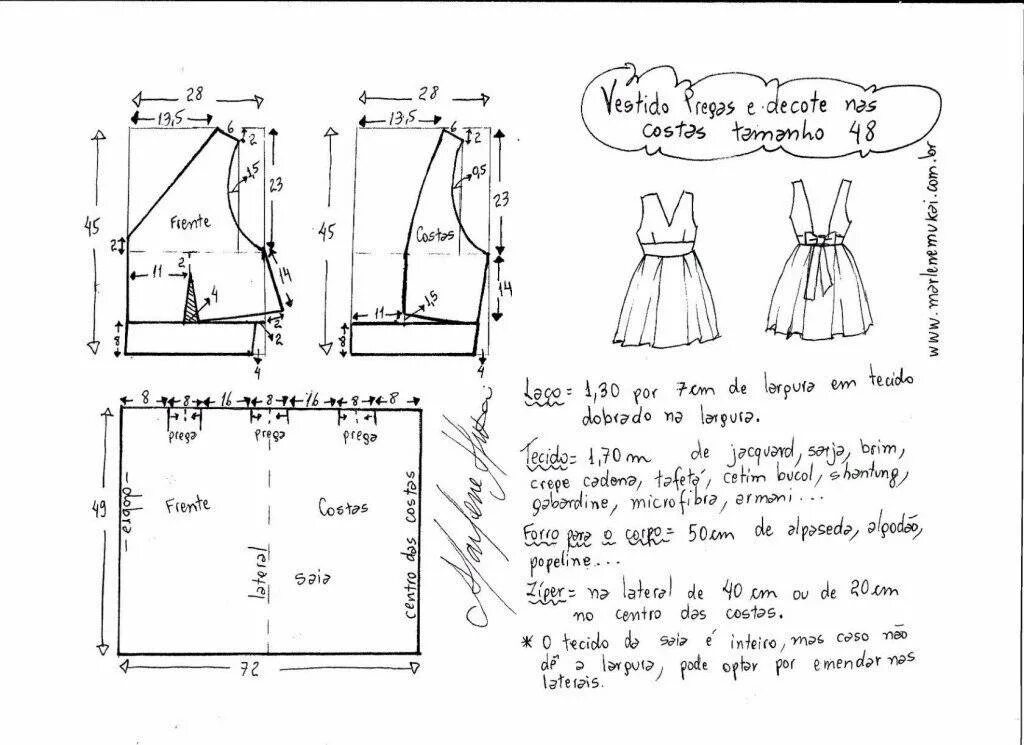 Vestido Pregas e decote nas
costas tamanho 48
www.marlenemukai.com.br
28
13,5
6
2
1,5
23
45
Frente
2
11
2
4
14
2
2
8
4
28
13,5
6
2
0,5
23
45
Costas
14
11
1,5
8
4
8 8 16 8 16 8 8
prega prega prega
49
dobra
Frente
Costas
lateral
saia
centro das costas
72
Marlene Mukai
Laço = 1,30 por 7cm de largura em tecido
dobrado na largura.
Tecido = 1,70m de jacquard, sarja, brim,
crepe cadena, tafetá, cetim bucol, shantung,
gabardine, microfibra, armani...
Forro para o corpo = 50cm de alpaseda, algodão,
popeline...
Zíper = na lateral de 40 cm ou de 20cm
no centro das costas.
* O tecido da saia é inteiro, mas caso não
dê a largura, pode optar por emendar nas
laterais.